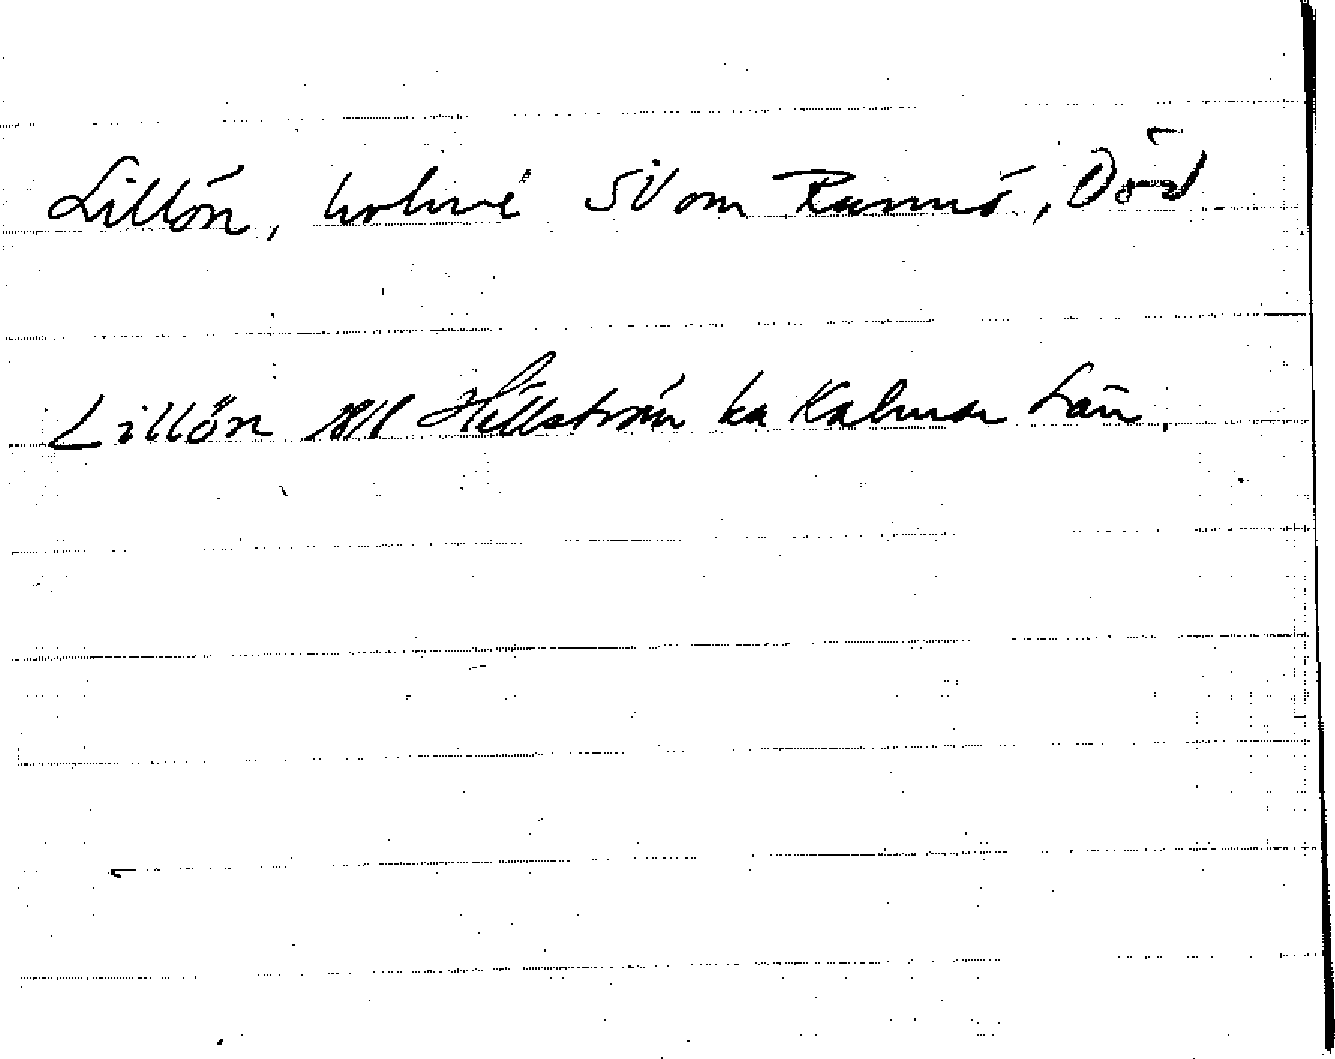 Lillön, holme SV om Runnö, Död
Lillön 1818 Hällström ka Kalmar Län.